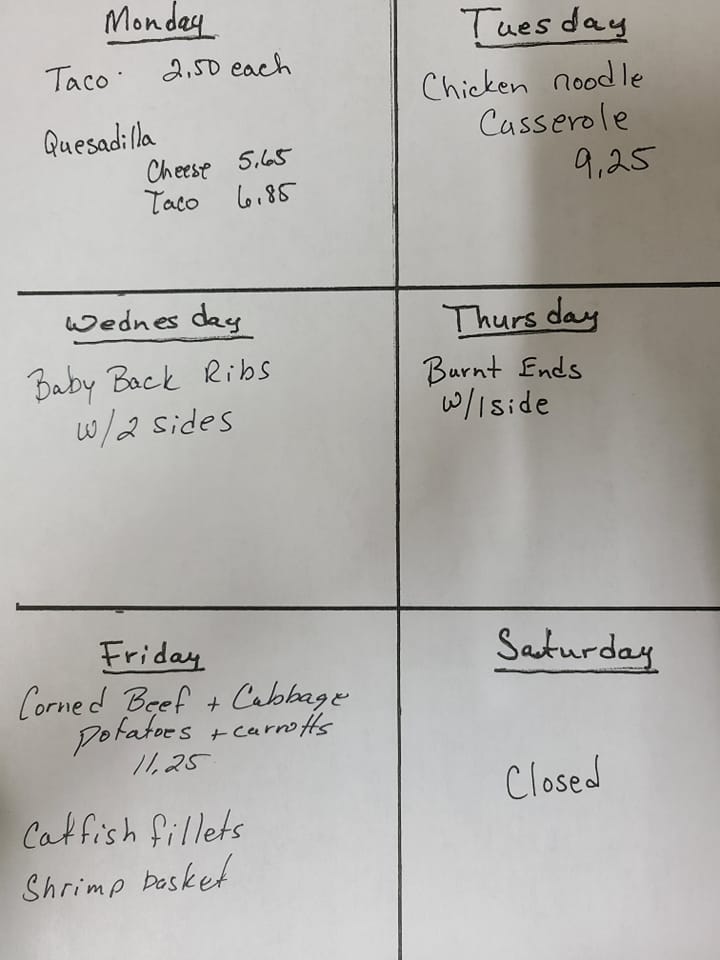 Monday
Taco 2.50 each
Quesadilla
Cheese 5.65
Taco 6.85
Tuesday
Chicken noodle
Casserole
9.25
Wednesday
Baby Back Ribs
w/2 sides
Thursday
Burnt Ends
w/1 side
Friday
Corned Beef + Cabbage
potatoes + carrotts
11.25
Catfish fillets
Shrimp basket
Saturday
Closed